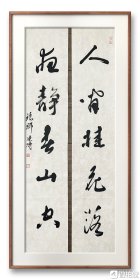 人闲桂花落
夜静春山空